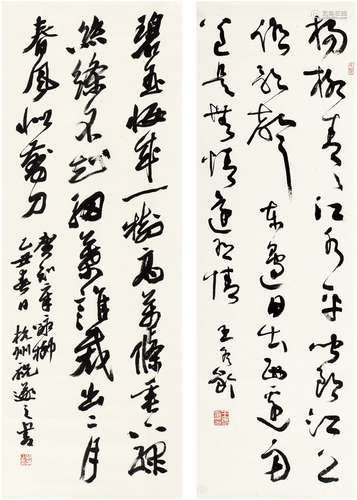 楊柳青青江水平聞郎江上
唱歌聲東邊日出西邊雨
道是無情還有情 王冬齡
碧玉妝成一樹高萬條垂下綠
絲絛不知細葉誰裁出二月
春風似剪刀
賀知章詠柳
乙丑春日杭州祝遂之書